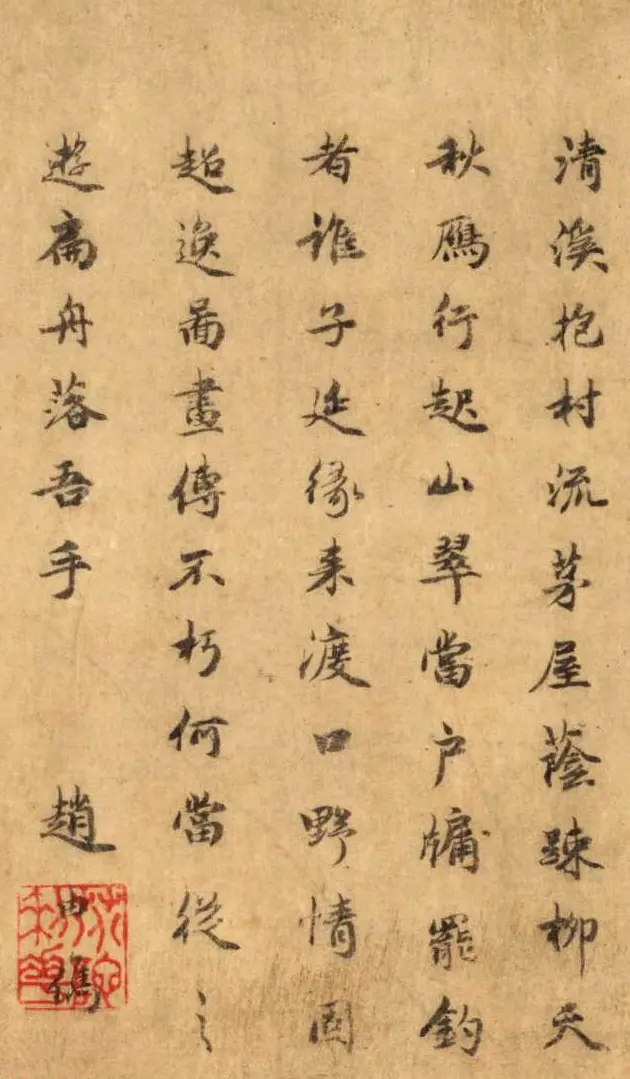 清溪抱村流茅屋蔭踈柳天
秋鴈行起山翠當户牖罷釣
者誰子延緣来渡口野情固
超逸啚畫傳不朽何當從之
遊扁舟落吾手 趙由